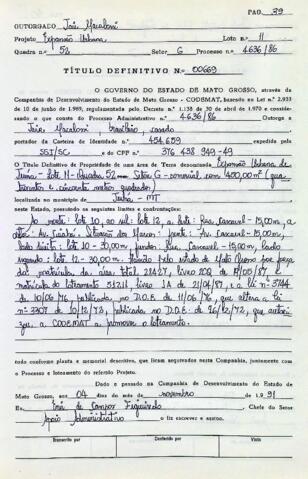 PAG. 39
OUTORGADO José Macaloni
Projeto Expansão Urbana Lote N.º 11
Quadra n.º 52 Setor G Processo n.º 4636/86
TÍTULO DEFINITIVO N.º 00669
O GOVERNO DO ESTADO DE MATO GROSSO, através da
Companhia de Desenvolvimento do Estado de Mato Grosso - CODEMAT, baseado na Lei n.º 2.933
de 10 de junho de 1969, regulamentada pelo Decreto n.º 1.138 de 30 de abril de 1970 e conside-
rando o que consta do Processo Administrativo n.º 4636/86 Outorga a
José Macaloni, brasileiro, casado
portador da Carteira de Identidade n.º 454.659 expedida pela
SSI/SC e do CPF n.º 376 438 949-49
O Título Definitivo de Propriedade de uma área de Terra denominada Expansão Urbana de
Juína - Lote 11 - Quadra 52 Setor G - comercial, com 400,00m² (qua
trocentos e metros quadrados)
localizada no município de Juína - MT
neste Estado, possuindo os seguintes limites e confrontações:
Ao norte: lote 10, ao sul: lote 12, a leste: Rua Cascavel - 15,00m, a
frente: Av.
lado direito: lote 10 - 30,00m, fundos: Rua Cascavel - 15,00m, lado
esquerdo: lote 12 - 30,00m. pelo Estado de Mato Grosso por força
da matrícula da área total 28427, livro 2 de 17/05/87, e
matrícula do loteamento livro de 21/04/87, e a lei nº 3744
de 10/06/76, publicada no D.O.E de 11/06/76, que altera a lei
nº 3307 de 18/12/72, publicada no D.O.E. de 26/12/72, que autori
zou a CODEMAT a promover o loteamento.
tudo conforme planta e memorial descritivo, que ficam arquivados nesta Companhia, juntamente com
o Processo e loteamento do referido Projeto.
Dado e passado na Companhia de Desenvolvimento do Estado de
Mato Grosso, aos 04 dias do mês de novembro de 1991
Eu, de Campos Figueiredo Chefe do Setor
Apoio Administrativo o fiz escrever e assino.
Transcrito por Conferido por Visto